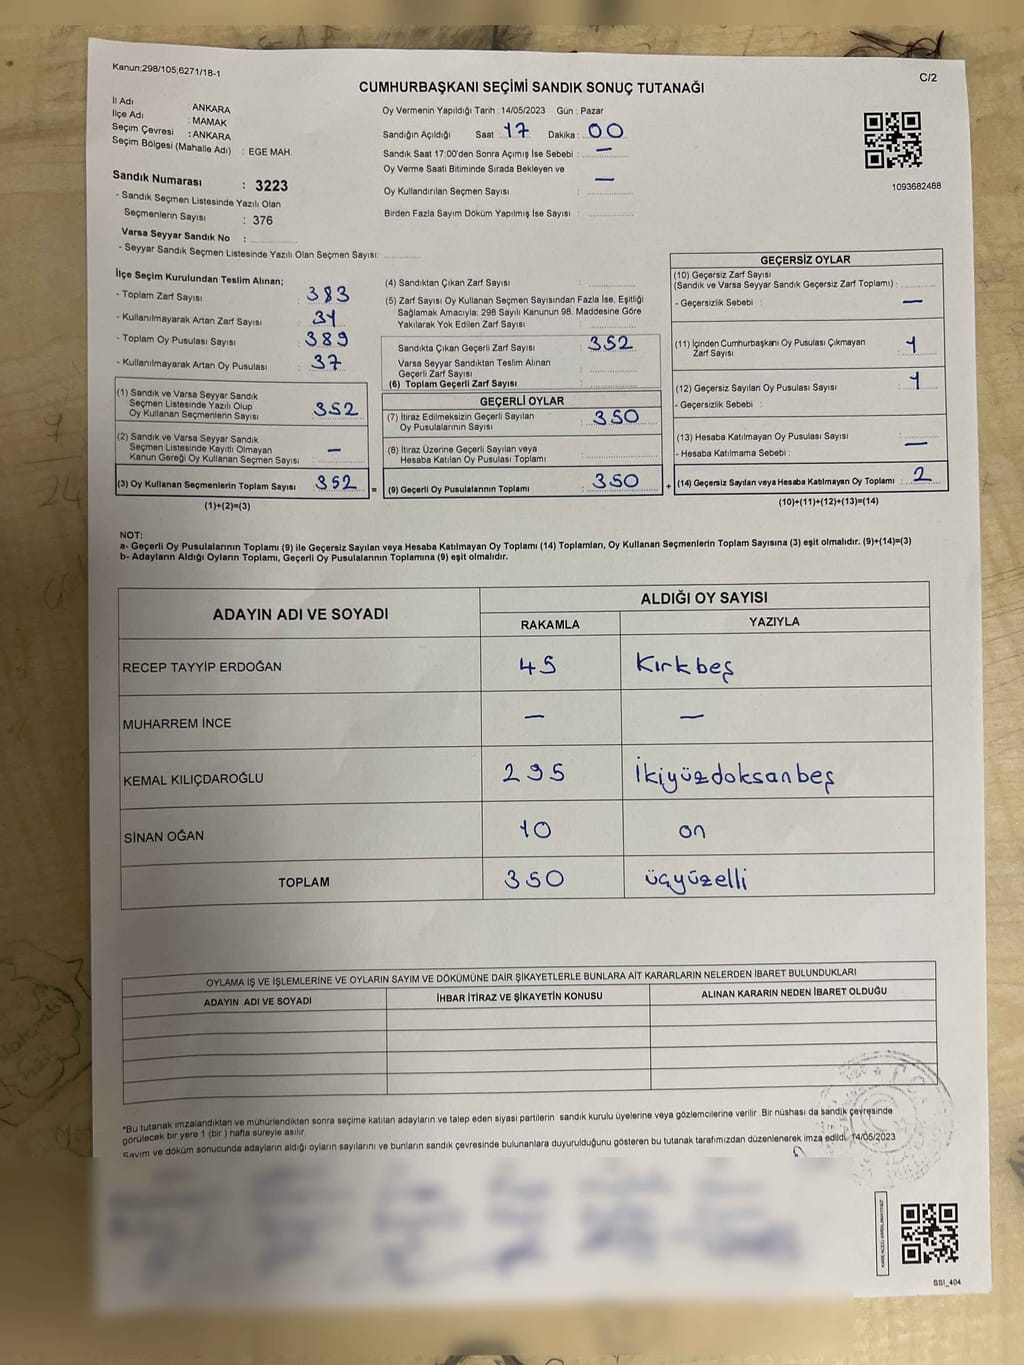 Kanun;298/105;6271/18-1
C/2
CUMHURBAŞKANI SEÇİMİ SANDIK SONUÇ TUTANAĞI
İl Adı : ANKARA
İlçe Adı : MAMAK
Seçim Çevresi : ANKARA
Seçim Bölgesi (Mahalle Adı) : EGE MAH.
Sandık Numarası : 3223
- Sandık Seçmen Listesinde Yazılı Olan
Seçmenlerin Sayısı : 376
Varsa Seyyar Sandık No :
- Seyyar Sandık Seçmen Listesinde Yazılı Olan Seçmen Sayısı:
Oy Vermenin Yapıldığı Tarih : 14/05/2023 Gün : Pazar
Sandığın Açıldığı Saat : 17 Dakika : 00
Sandık Saat 17:00'den Sonra Açımış İse Sebebi : —
Oy Verme Saati Bitiminde Sırada Bekleyen ve
Oy Kullandırılan Seçmen Sayısı : —
Birden Fazla Sayım Döküm Yapılmış İse Sayısı :
1093682488
İlçe Seçim Kurulundan Teslim Alınan;
- Toplam Zarf Sayısı : 383
- Kullanılmayarak Artan Zarf Sayısı : 31
- Toplam Oy Pusulası Sayısı : 389
- Kullanılmayarak Artan Oy Pusulası : 37
(1) Sandık ve Varsa Seyyar Sandık
Seçmen Listesinde Yazılı Olup
Oy Kullanan Seçmenlerin Sayısı : 352
(2) Sandık ve Varsa Seyyar Sandık
Seçmen Listesinde Kayıtlı Olmayan
Kanun Gereği Oy Kullanan Seçmen Sayısı : —
(3) Oy Kullanan Seçmenlerin Toplam Sayısı : 352 =
(1)+(2)=(3)
(4) Sandıktan Çıkan Zarf Sayısı :
(5) Zarf Sayısı Oy Kullanan Seçmen Sayısından Fazla İse, Eşitliği
Sağlamak Amacıyla; 298 Sayılı Kanunun 98. Maddesine Göre
Yakılarak Yok Edilen Zarf Sayısı :
Sandıkta Çıkan Geçerli Zarf Sayısı : 352
Varsa Seyyar Sandıktan Teslim Alınan
Geçerli Zarf Sayısı :
(6) Toplam Geçerli Zarf Sayısı :
GEÇERLİ OYLAR
(7) İtiraz Edilmeksizin Geçerli Sayılan
Oy Pusulalarının Sayısı : 350
(8) İtiraz Üzerine Geçerli Sayılan veya
Hesaba Katılan Oy Pusulası Toplamı :
(9) Geçerli Oy Pusulalarının Toplamı : 350 +
GEÇERSİZ OYLAR
(10) Geçersiz Zarf Sayısı
(Sandık ve Varsa Seyyar Sandık Geçersiz Zarf Toplamı) :
- Geçersizlik Sebebi : —
(11) İçinden Cumhurbaşkanı Oy Pusulası Çıkmayan
Zarf Sayısı : 1
(12) Geçersiz Sayılan Oy Pusulası Sayısı : 1
- Geçersizlik Sebebi :
(13) Hesaba Katılmayan Oy Pusulası Sayısı : —
- Hesaba Katılmama Sebebi :
(14) Geçersiz Sayılan veya Hesaba Katılmayan Oy Toplamı : 2
(10)+(11)+(12)+(13)=(14)
NOT:
a- Geçerli Oy Pusulalarının Toplamı (9) ile Geçersiz Sayılan veya Hesaba Katılmayan Oy Toplamı (14) Toplamları, Oy Kullanan Seçmenlerin Toplam Sayısına (3) eşit olmalıdır. (9)+(14)=(3)
b- Adayların Aldığı Oyların Toplamı, Geçerli Oy Pusulalarının Toplamına (9) eşit olmalıdır.
ADAYIN ADI VE SOYADI
ALDIĞI OY SAYISI
RAKAMLA YAZIYLA
RECEP TAYYİP ERDOĞAN 45 Kırkbeş
MUHARREM İNCE — —
KEMAL KILIÇDAROĞLU 295 İkiyüzdoksanbeş
SİNAN OĞAN 10 on
TOPLAM 350 üçyüzelli
OYLAMA İŞ VE İŞLEMLERİNE VE OYLARIN SAYIM VE DÖKÜMÜNE DAİR ŞİKAYETLERLE BUNLARA AİT KARARLARIN NELERDEN İBARET BULUNDUKLARI
ADAYIN ADI VE SOYADI İHBAR İTİRAZ VE ŞİKAYETİN KONUSU ALINAN KARARIN NEDEN İBARET OLDUĞU
*Bu tutanak imzalandıktan ve mühürlendikten sonra seçime katılan adayların ve talep eden siyasi partilerin sandık kurulu üyelerine veya gözlemcilerine verilir. Bir nüshası da sandık çevresinde
görülecek bir yere 1 (bir ) hafta süreyle asılır.
Sayım ve döküm sonucunda adayların aldığı oyların sayılarını ve bunların sandık çevresinde bulunanlara duyurulduğunu gösteren bu tutanak tarafımızdan düzenlenerek imza edildi. 14/05/2023
SSI_404